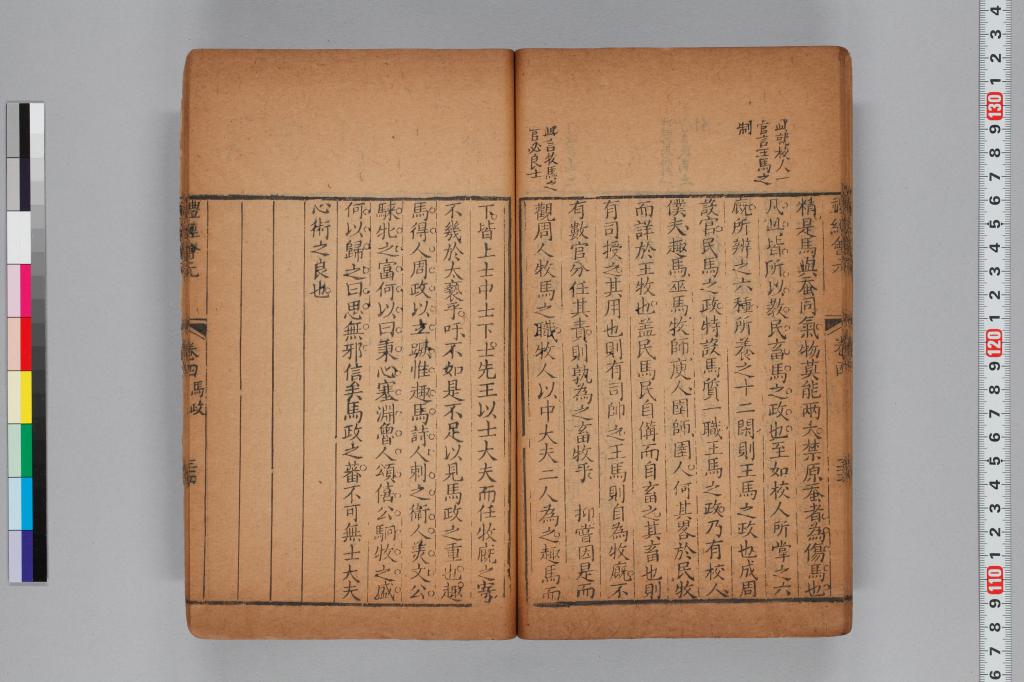 此詳校人一
官言王馬之
制
精是馬與蚕同氣物莫能兩大禁原蚕者為傷馬也
凡此皆所以教民畜馬之政也至如校人所掌之六
廐所辨之六種所養之十二閑則王馬之政也成周
設官民馬之政特設馬質一職王馬之政乃有校人
僕夫趣馬巫馬牧師廋人圉師圉人何其畧於民牧
而詳於王牧也蓋民馬民自備而自畜之其畜也則
有司授之其用也則有司帥之王馬則自為牧廐不
有數官分任其責則孰為之畜牧乎 抑嘗因是而
此言養馬之
官必良士
觀周人牧馬之職牧人以中大夫二人為之趣馬而
下皆上士中士下士先王以士大夫而任牧廐之寄
不幾於太褻乎吁不如是不足以見馬政之重也趣
馬得人周政以立蹶惟趣馬詩人刺之衛人美文公
騋牝之富何以曰秉心塞淵魯人頌僖公駉牧之盛
何以歸之曰思無邪信矣馬政之蕃不可無士大夫
心術之良也
禮經會元
卷四 馬政